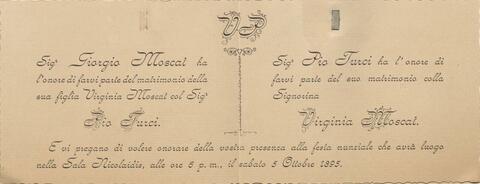 VP
Sigr Giorgio Moscat ha
l'onore di farvi parte del matrimonio della
sua figlia Virginia Moscat col Sigr
Pio Turci.
Sigr Pio Turci ha l'onore di
farvi parte del suo matrimonio colla
Signorina
Virginia Moscat.
E vi pregano di volere onorare della vostra presenza alla festa nunziale che avrà luogo
nella Sala Nicolaidis, alle ore 5 p. m., il sabato 5 Ottobre 1895.